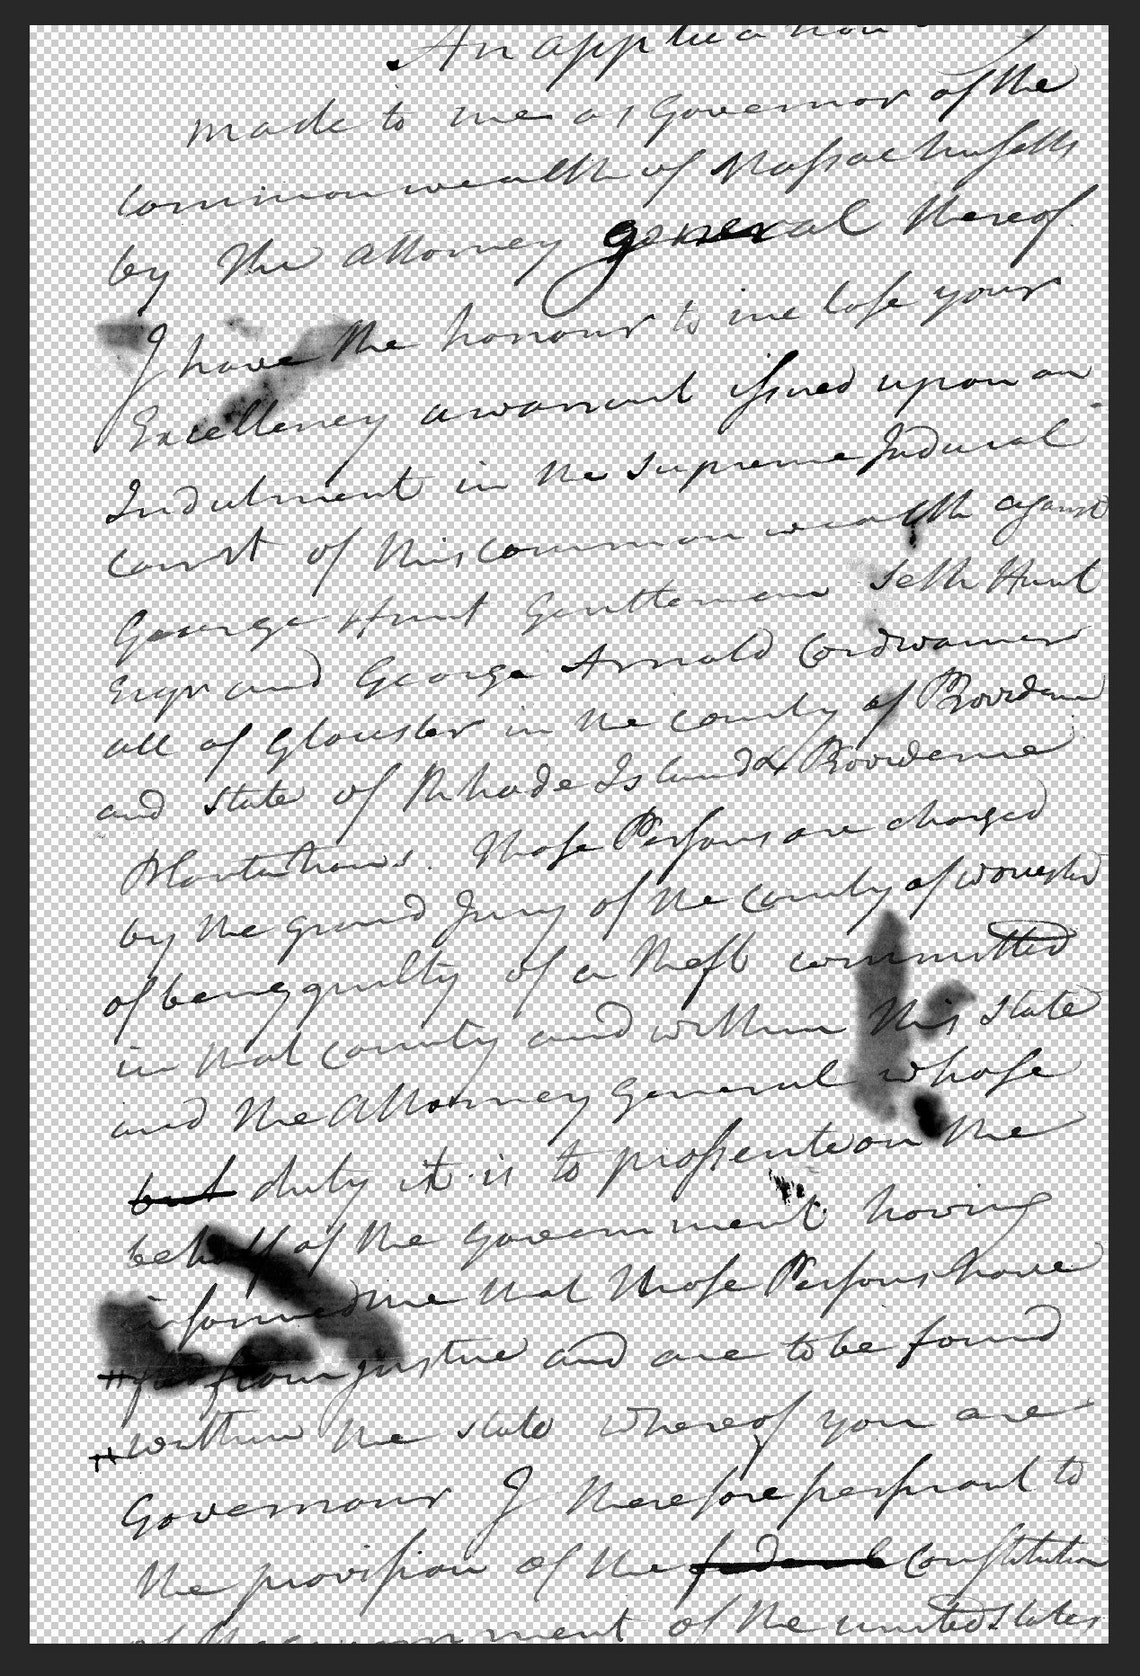 An application
made to me as Governor of the
Commonwealth of Massachusetts
by the Attorney general thereof
I have the honour to inclose your
Excellency a warrant issued upon an
Indictment in the Supreme Judicial
Court of this Commonwealth against
George Hunt Gentleman Seth Hunt
and George Arnald Cordwainer
all of Glouster in the County of Providence
and State of Rhode Island & Providence
Plantations. Those Persons are charged
by the grand Jury of the County of Worcester
of being guilty of a theft committed
in that County and within this State
and the Attorney General whose
but duty it is to prossecute on the
behalf of the Goverment having
informed me that those Persons have
fled from justice and are to be found
within the State whereof you are
Governour I therefore persuant to
the provision of the federal Constitution
of the of the united States